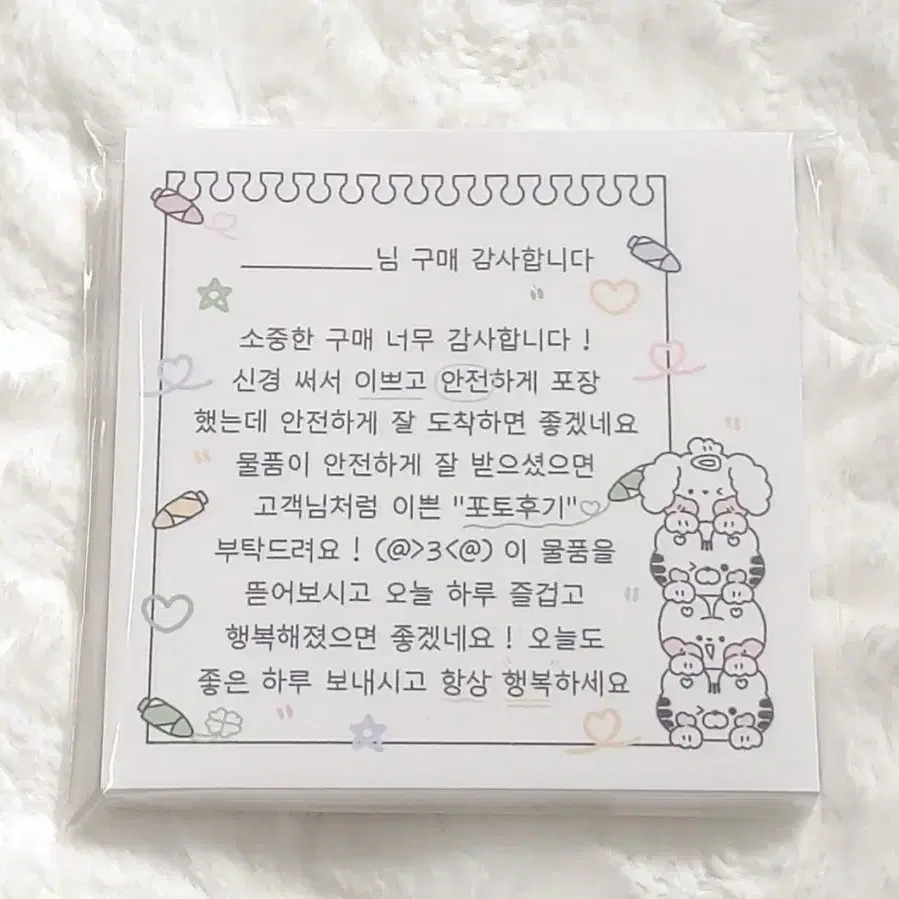 ________님 구매 감사합니다
소중한 구매 너무 감사합니다 !
신경 써서 이쁘고 안전하게 포장
했는데 안전하게 잘 도착하면 좋겠네요
물품이 안전하게 잘 받으셨으면
고객님처럼 이쁜 "포토후기"♡
부탁드려요 ! (@>3<@) 이 물품을
뜯어보시고 오늘 하루 즐겁고
행복해졌으면 좋겠네요 ! 오늘도
좋은 하루 보내시고 항상 행복하세요